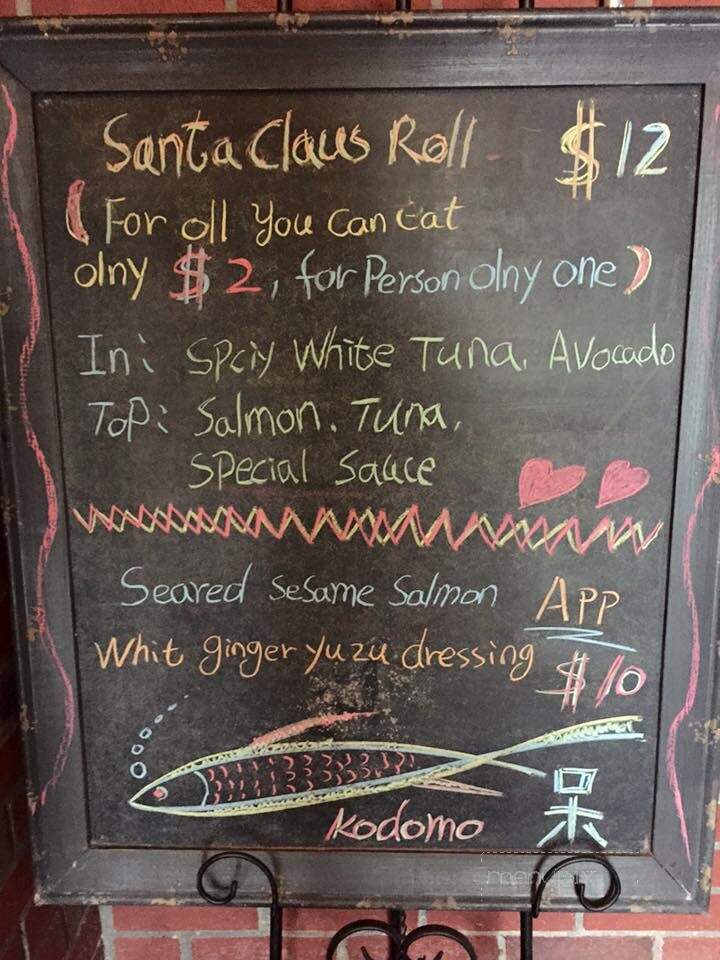 Santa Claus Roll $12
(For all You Can Eat
olny $2, for Person olny one)
In: SPciy White Tuna, Avocado
Top: Salmon. Tuna,
Special Sauce
Seared Sesame Salmon APP
Whit ginger yuzu dressing $10
Kodomo
呆